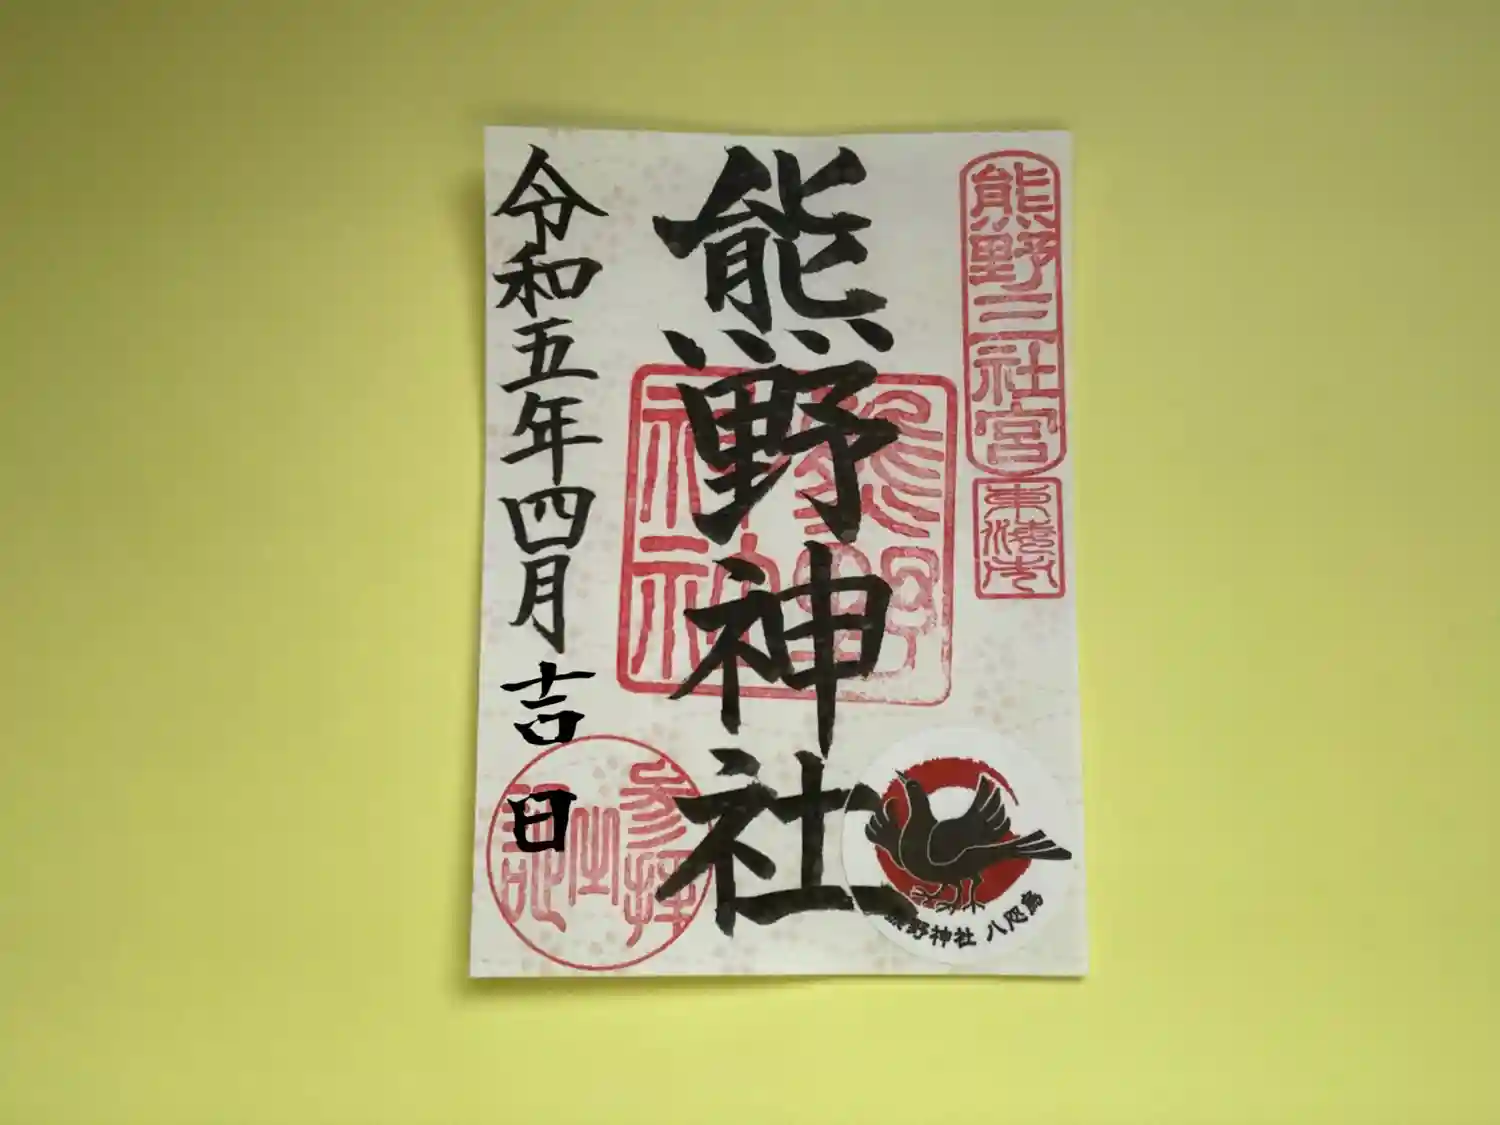 熊野三社宮
東海市
熊野神社
熊野神社
令和五年四月吉日
参拝之記
熊野神社 八咫烏